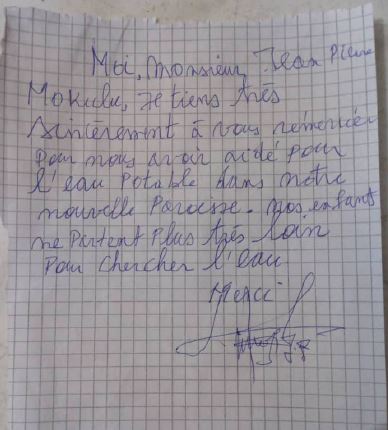 Moi, Monsieur Jean Pierre
Mokulu, Je tiens très
sincèrement à vous remercier
Pour nous avoir aidé pour
l'eau Potable dans notre
nouvelle Paroisse. Nos enfants
ne Partent Plus très loin
Pour chercher l'eau
Merci